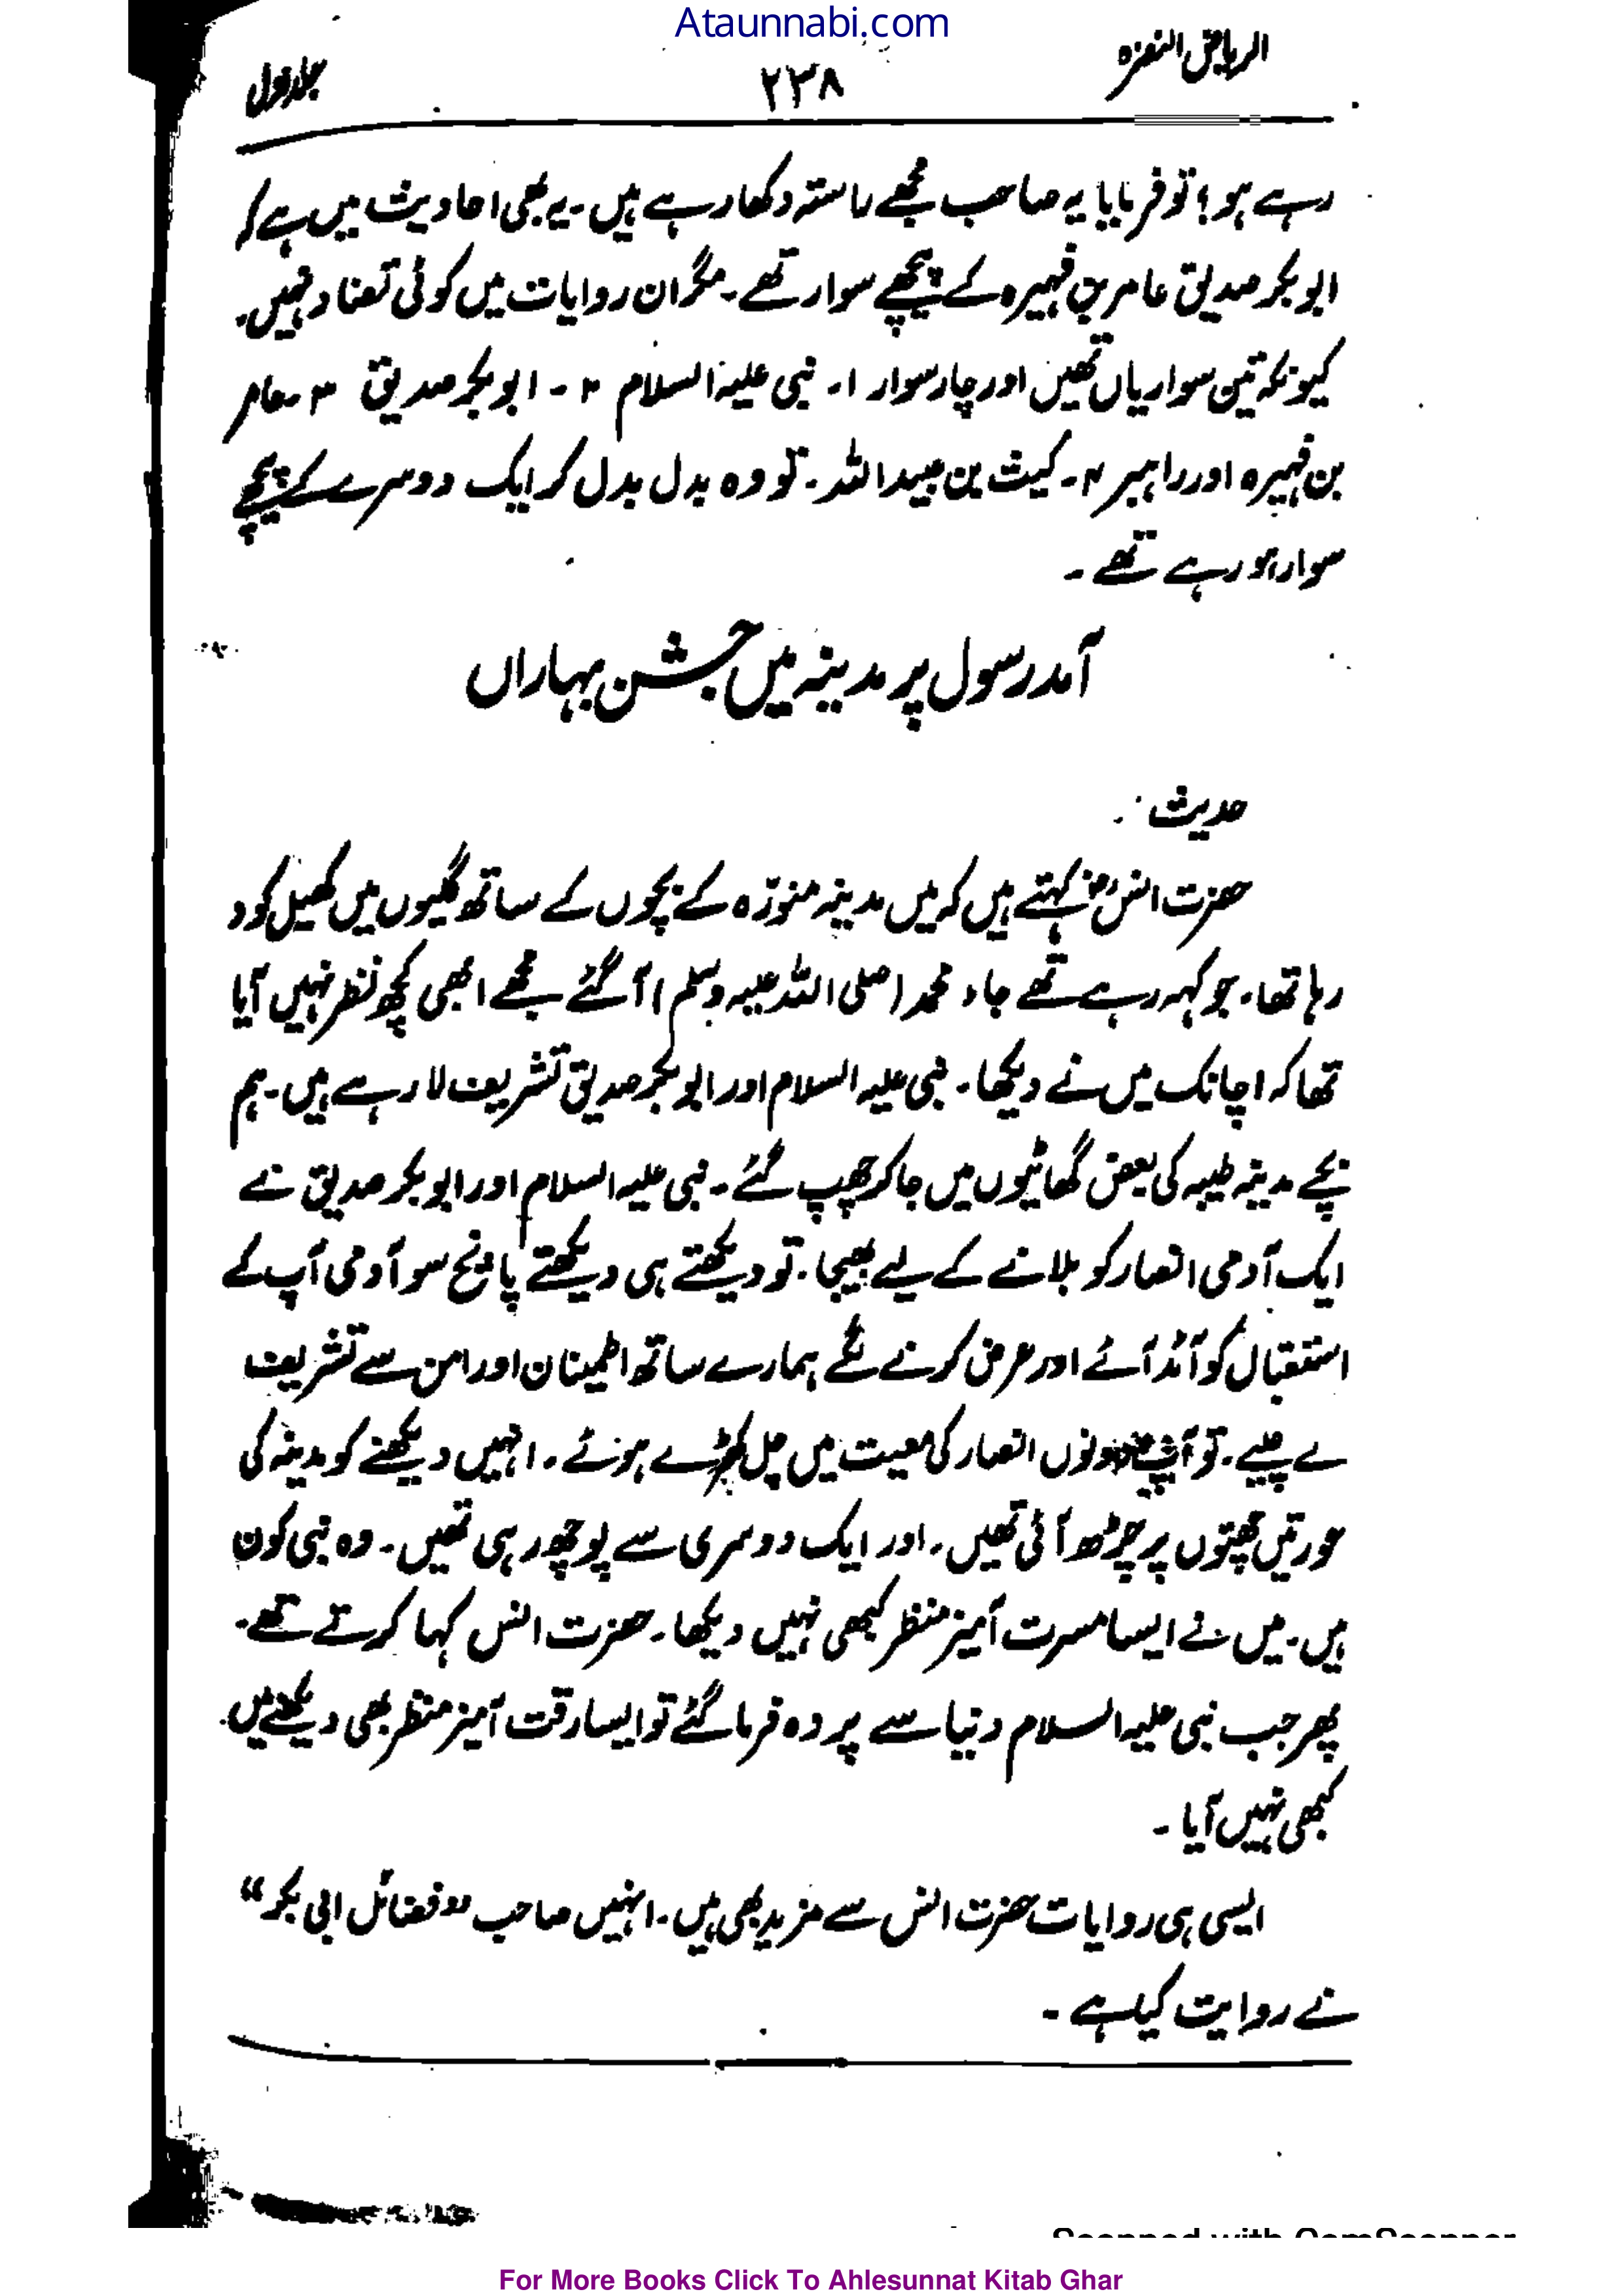 Ataunnabi.com
الریاض النضرہ ۲۳۸ جلد اول
رہے ہو؟ تو فرمایا یہ صاحب مجھے راستہ دکھا رہے ہیں۔ یہ بھی احادیث میں ہے کہ
ابوبکر صدیق عامر بن فہیرہ کے پیچھے سوار تھے۔ مگر ان روایات میں کوئی تضاد نہیں۔
کیونکہ تین سواریاں تھیں اور چار سوار ۱۔ نبی علیہ السلام ۲۔ ابوبکر صدیق ۳۔ عامر
بن فہیرہ اور راہبر ۴۔ کیث بن عبیداللہ۔ تو وہ بدل بدل کر ایک دوسرے کے پیچھے
سوار ہو رہے تھے۔
آمد رسول پر مدینہ میں جشن بہاراں
حدیث :
حضرت انسؓ کہتے ہیں کہ میں مدینہ منورّہ کے بچوں کے ساتھ گلیوں میں کھیل کود
رہا تھا۔ جو کہہ رہے تھے جاء محمد (صلی اللہ علیہ وسلم) آ گئے مجھے ابھی کچھ نظر نہیں آیا
تھا کہ اچانک میں نے دیکھا۔ نبی علیہ السلام اور ابوبکر صدیق تشریف لا رہے ہیں۔ ہم
بچے مدینہ طیبہ کی بعض گھاٹیوں میں جا کر چھپ گئے۔ نبی علیہ السلام اور ابوبکر صدیق نے
ایک آدمی انصار کو بلانے کے لیے بھیجا۔ تو دیکھتے ہی دیکھتے پانچ سو آدمی آپ کے
استقبال کو آمڈ آئے اور عرض کرنے لگے ہمارے ساتھ اطمینان اور امن سے تشریف
لے چلیے۔ تو آپ دونوں انصار کی معیت میں چل کھڑے ہوئے۔ انہیں دیکھنے کو مدینہ کی
عورتیں چھتوں پر چڑھ آئی تھیں۔ اور ایک دوسری سے پوچھ رہی تھیں۔ وہ نبی کون
ہیں۔ میں نے ایسا مسرت آمیز منظر کبھی نہیں دیکھا۔ حضرت انس کہا کرتے تھے۔
پھر جب نبی علیہ السلام دنیا سے پردہ فرما گئے تو ایسا رقت آمیز منظر بھی دیکھنے میں
کبھی نہیں آیا۔
ایسی ہی روایات حضرت انس سے مزید بھی ہیں۔ انہیں صاحب ”فضائل ابی بکر“
نے روایت کیا ہے۔
Scanned with CamScanner
For More Books Click To Ahlesunnat Kitab Ghar